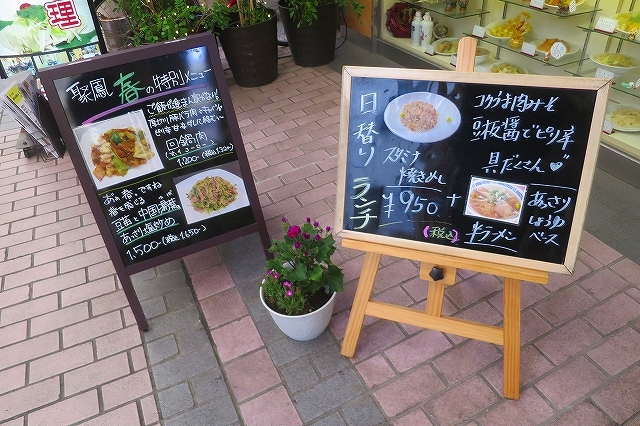 理
聚鳳 春の特別メニュー
ご飯が進む
回鍋肉
(ホイコーロー)
1,200 (税込1,320)
あぁ 春ですね
春を感じる
豆苗と中国湯葉
あさり塩炒め
1,500 (税込1,650)
日替り ランチ
スタミナ
焼めし
¥950
(税込)
+
半ラーメン
コクうま肉みそ
豆板醤でピリ辛
具だくさん♡
あさり
しょうゆ
ベース